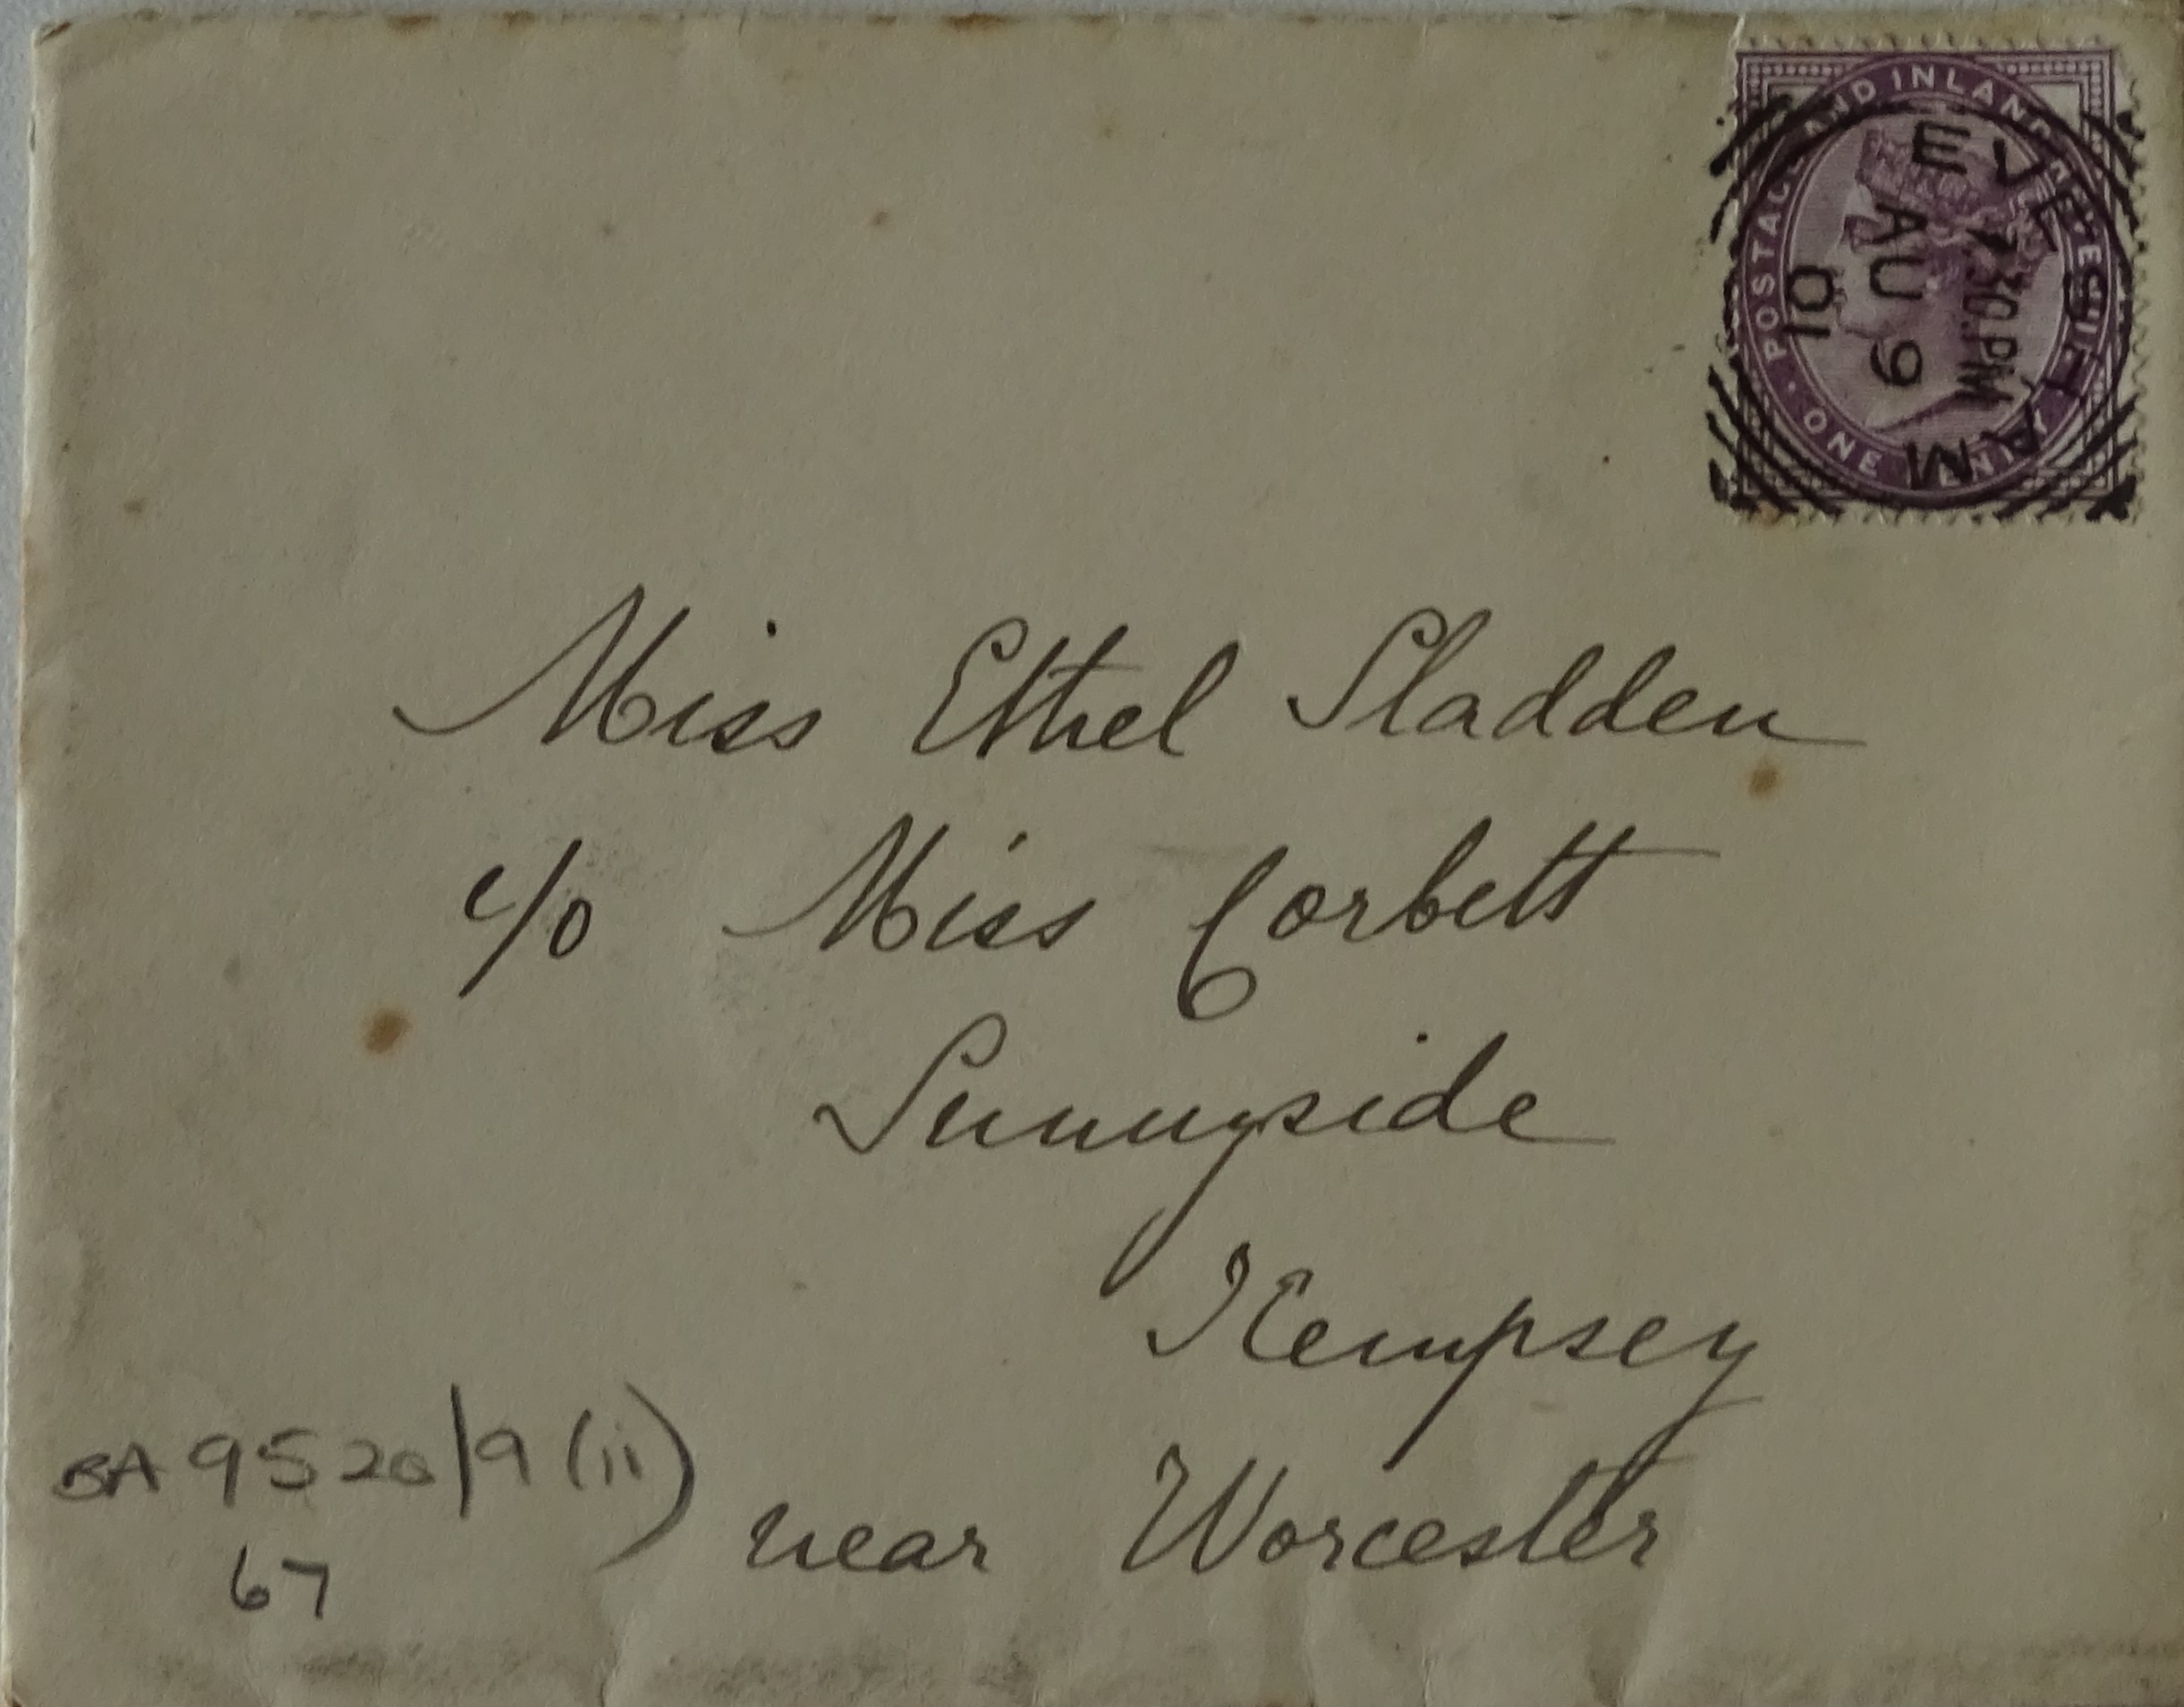 POSTAGE AND INLAND REVENUE
ONE PENNY
EVESHAM
7.30.PM
AU 9
01
Miss Ethel Sladden
c/o Miss Corbett
Sunnyside
Kempsey
near Worcester
BA 9520/9 (ii)
67